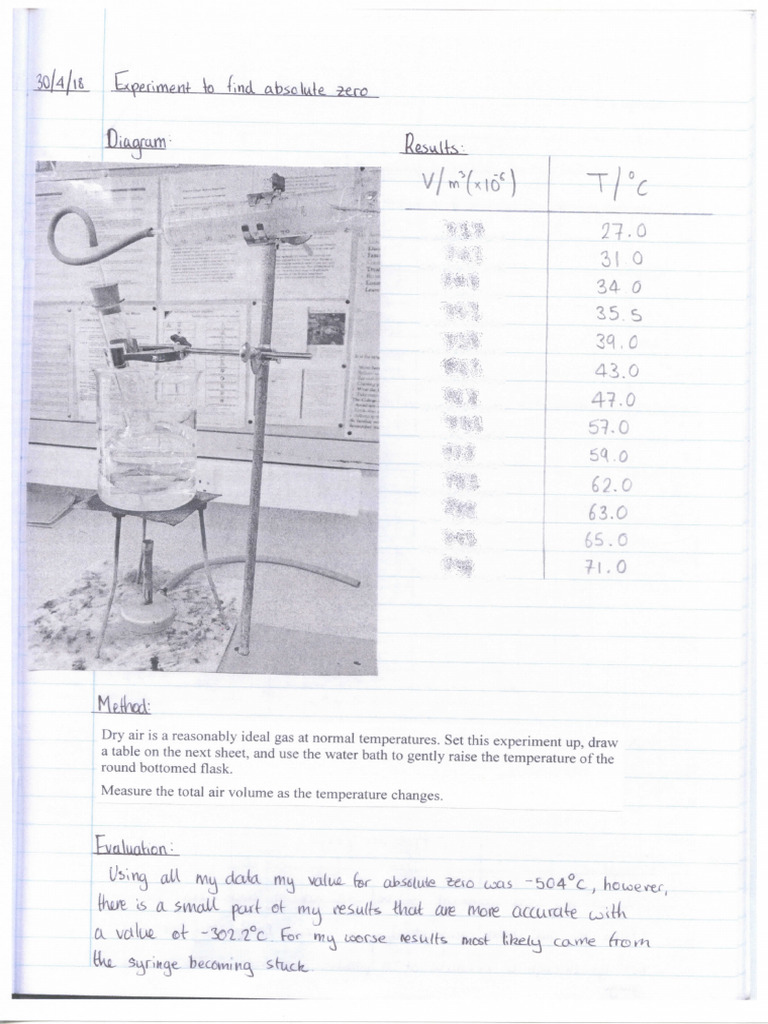 30/4/18 Experiment to find absolute zero
Diagram:
Results:
V/m³(×10⁻⁶) T/°C
27.0
31 0
34 0
35.5
39.0
43.0
47.0
57.0
59.0
62.0
63.0
65.0
71.0
Method:
Dry air is a reasonably ideal gas at normal temperatures. Set this experiment up, draw
a table on the next sheet, and use the water bath to gently raise the temperature of the
round bottomed flask.
Measure the total air volume as the temperature changes.
Evaluation:
Using all my data my value for absolute zero was -504°C, however,
there is a small part of my results that are more accurate with
a value of -302.2°C. For my worse results most likely came from
the syringe becoming stuck.